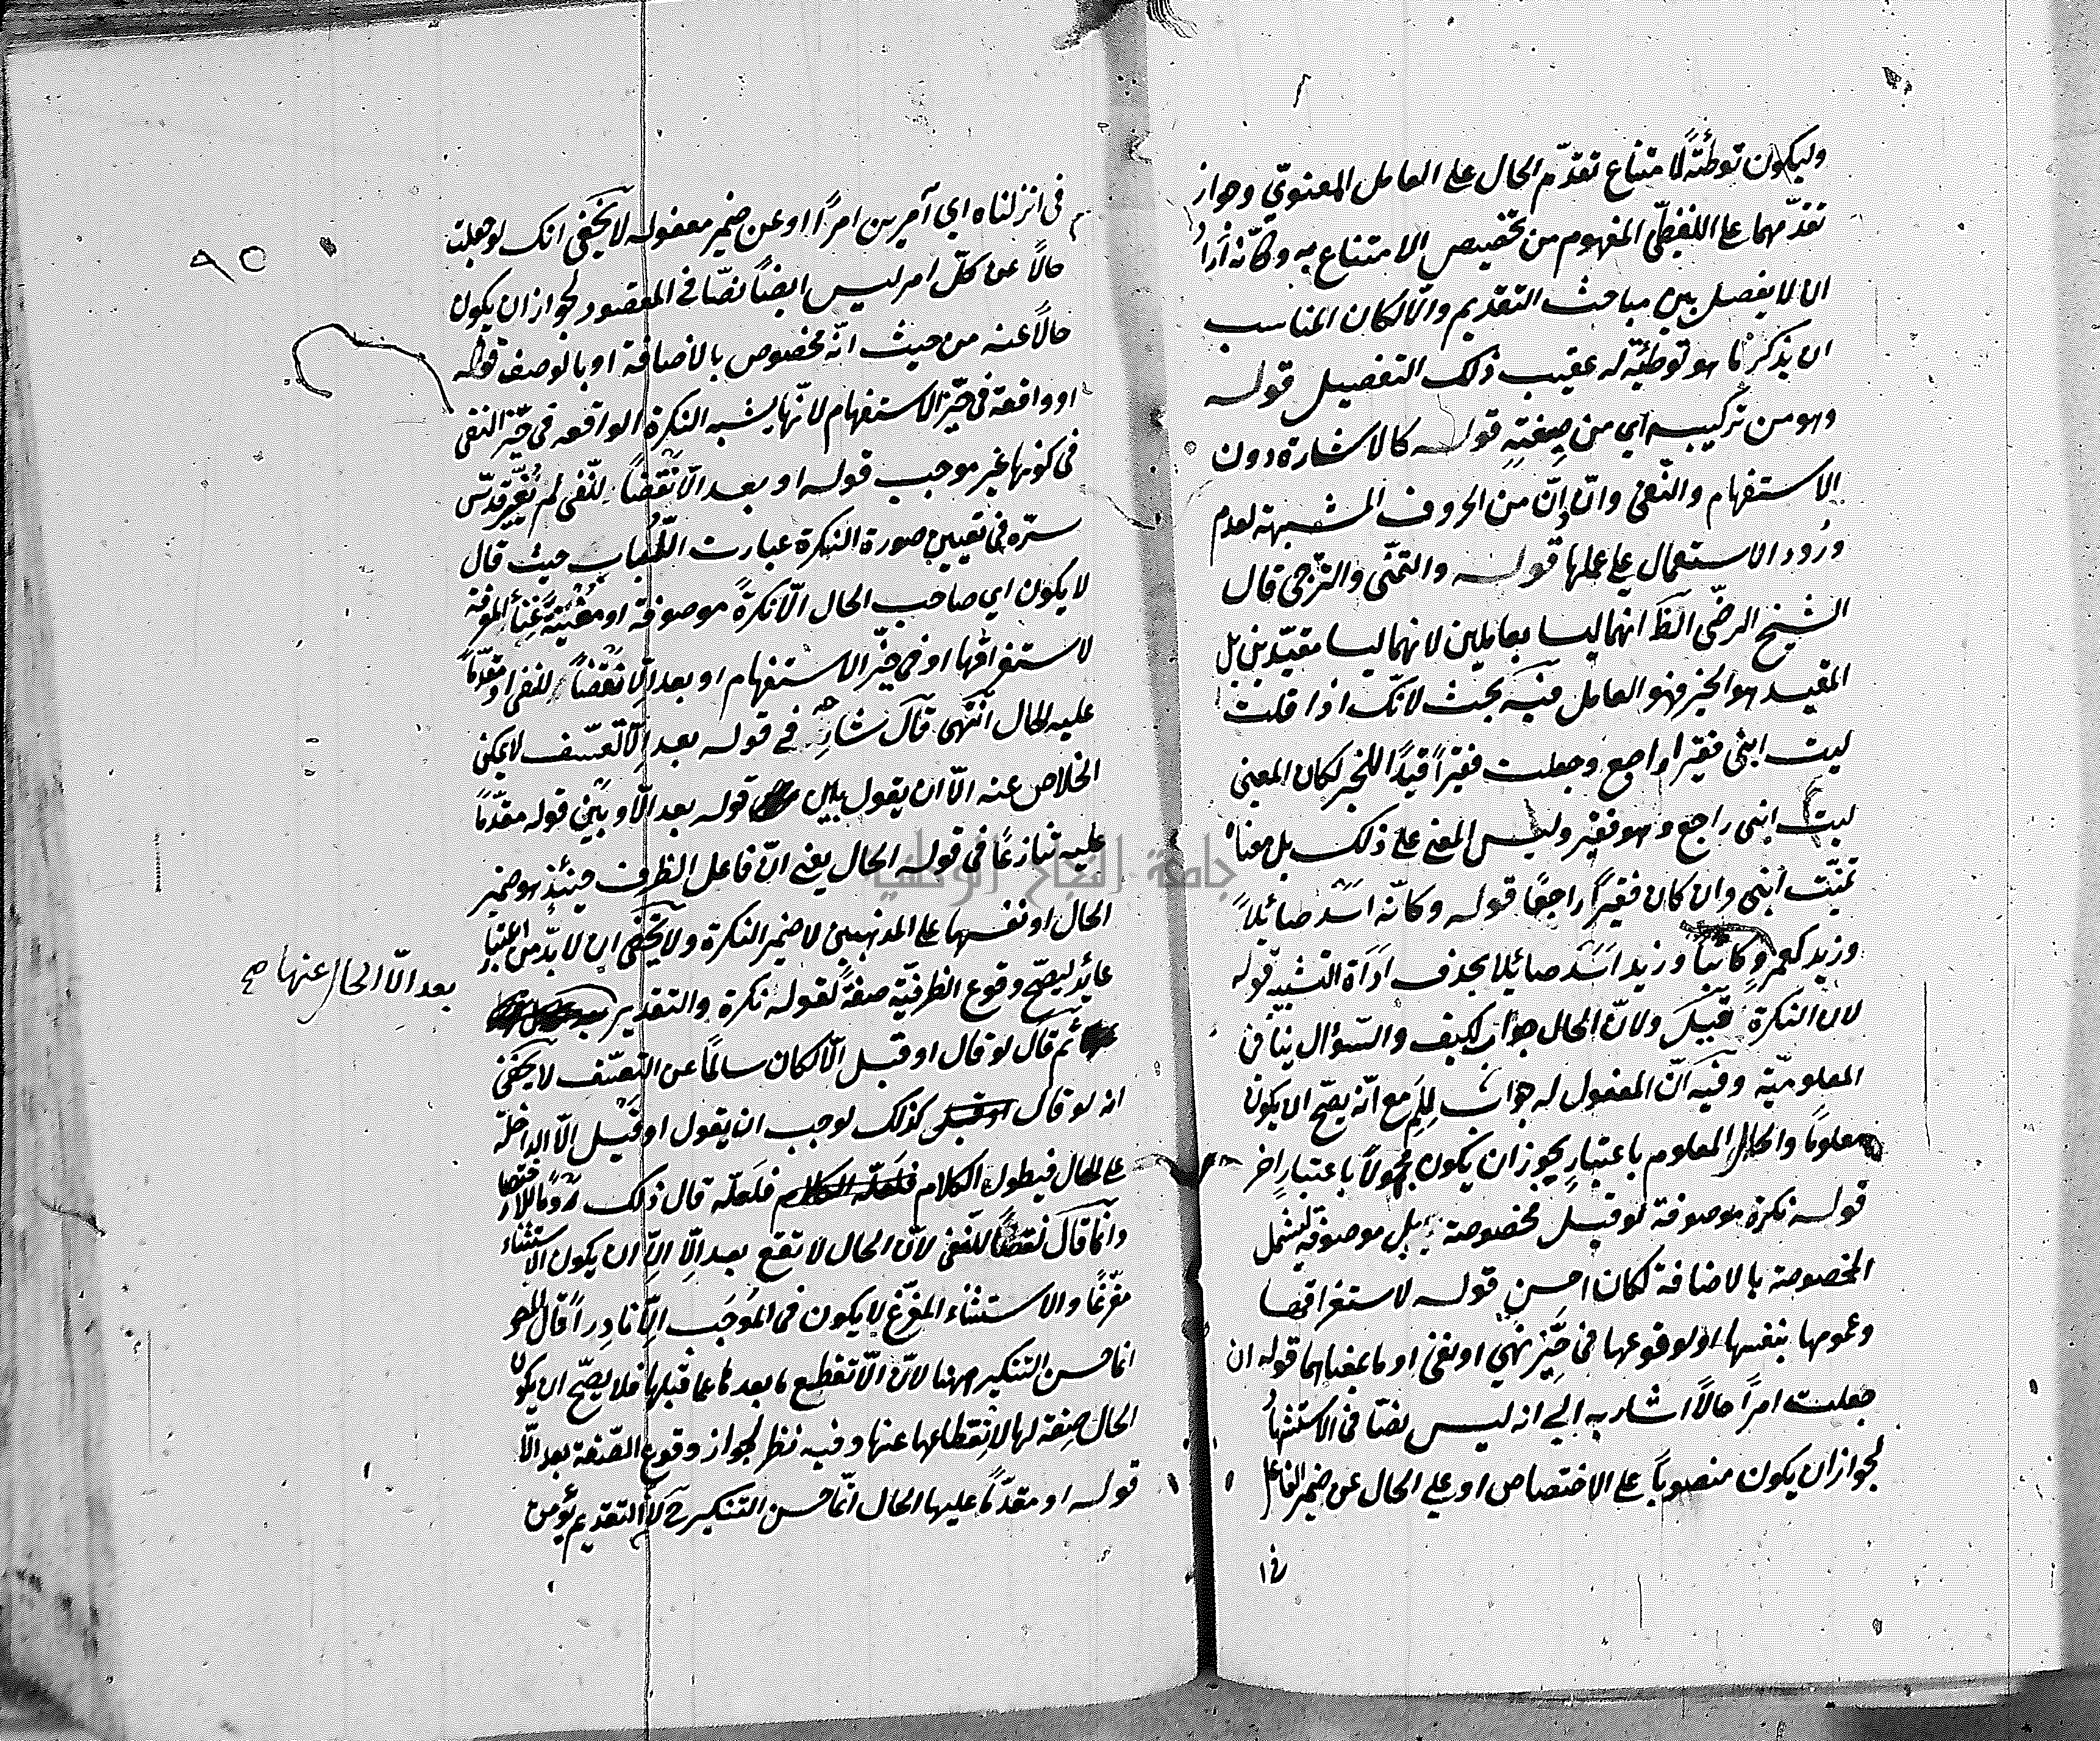 وليكون توطئةً لامتناع تقدّم الحال على العامل المعنويّ وجواز
تقدّمهما على اللفظيّ المفهوم من تخصيص الامتناع به وكانّه اراد
ان لا يفصل بين مباحث التقديم والّا لكان المناسب
ان يذكر ما هو توطئة له عقيب ذلك التفصيل قوله
وهو من تركيبه اي من صيغته قوله كالاشارة دون
الاستفهام والنّفى وانّ وانّ من الحروف المشبهة لعدم
ورُود الاستعمال على عملها قوله والتمنّى والترجى قال
الشيخ الرضّى الظ انهما ليسا بعاملين لانهما ليسا مقيّدين بل
المقيد هو الخبر فهو العامل فيه بحث لانّك اذا قلت
ليت ابنى فقيرا راجع وجعلت فقيراً قيداً للخبر لكان المعنى
ليت ابنى راجع وهو فقير وليس المعنى على ذلك بل معناه
تمنّيت ابنى وان كان فقيراً راجعًا قوله وكانّه اسد صائلاً
وزيد كعمرو كاتباً وزيد اسد صائلا بحذف اداة التشبيه قوله
لان النكرة قيل ولانّ الحال جواب لكيف والسّؤال ينافى
المعلوميّة وفيه انّ المفعول له جواب لِلِمَ مع انّه يصحّ ان يكون
معلومًا والحال المعلوم باعتبارٍ يجوز ان يكون مجهولاً باعتبار اخر
قوله نكرة موصوفة لو قيل مخصوصة بدل موصوفة ليشمل
المخصوصة بالاضافة لكان احسن قوله لاستغراقها
وعمومها بنفسها او لوقوعها فى حيّز نهي او نفى او ما بمعناهما قوله ان
جعلت امراً حالاً اشار به الى انه ليس نصّا فى الاستشهاد
لجواز ان يكون منصوباً على الاختصاص او على الحال عن ضمير الفاعل
فى ا
٩٥
فى انزلناه اي آمرين امراً او عن ضمير مفعوله لا يخفى انك لو جعلت
حالاً عن كلّ امر ليس ايضاً نصّا فى المقصود لجواز ان يكون
حالاً عنه من حيث انّه مخصوص بالاضافة او بالوصف قوله
او واقعة فى حيّز الاستفهام لانّها يشبه النكرة الواقعه فى حيّز النفى
فى كونها غير موجب قوله او بعد الّا نقضاً للنّفى لم يُغيّر قدّس
سرّه فى تعيين صورة النكرة عبارت اللّباب حيث قال
لا يكون اي صاحب الحال الّا نكرةً موصوفة او مغنيةً غناء المعرفة
لاستغراقها او فى حيّز الاستفهام او بعد الّا نقضاً للنفى او مقدّماً
عليه الحال انتهى قال شارحه فى قوله بعد الّا تعسّف لا يمكن
الخلاص عنه الّا ان يقول بين قوله بعد الّا وبين قوله مقدّمًا
عليه تنازعًا فى قوله الحال يعنى انّ فاعل الظرف حينئذ هو ضمير
الحال او نفسها على المذهبين لا ضمير النكرة ولا يخفى ان لا بدّ من اعتبار
عائد ليصحّ وقوع الظرفيّة صفةً لقوله نكرة والتقدير
بعد الّا الحال عنها صح
ثم قال لو قال او قبل الّا لكان سالماً عن التعسّف لا يخفى
انه لو قال كذلك لوجب ان يقول او قبل الّا الداخلة
على الحال فيطول الكلام فلعلّه قال ذلك رَوْماً للاختصار
وانّما قال نقضاً للنّفى لانّ الحال لا تقع بعد الّا الّا ان يكون الاستثناء
مفرّغًا والاستثناء المفرّغ لا يكون فى الموجَب الّا نادراً قال
انما حسن التنكير ههنا لانّ الّا تقطع ما بعدها عما قبلها فلا يصحّ ان يكون
الحال صِفة لها لانقطاعها عنها وفيه نظر لجواز وقوع الصّفة بعد الّا
قوله او مقدّماً عليها الحال انّما حسن التنكير ح لانّ التقديم يؤمن